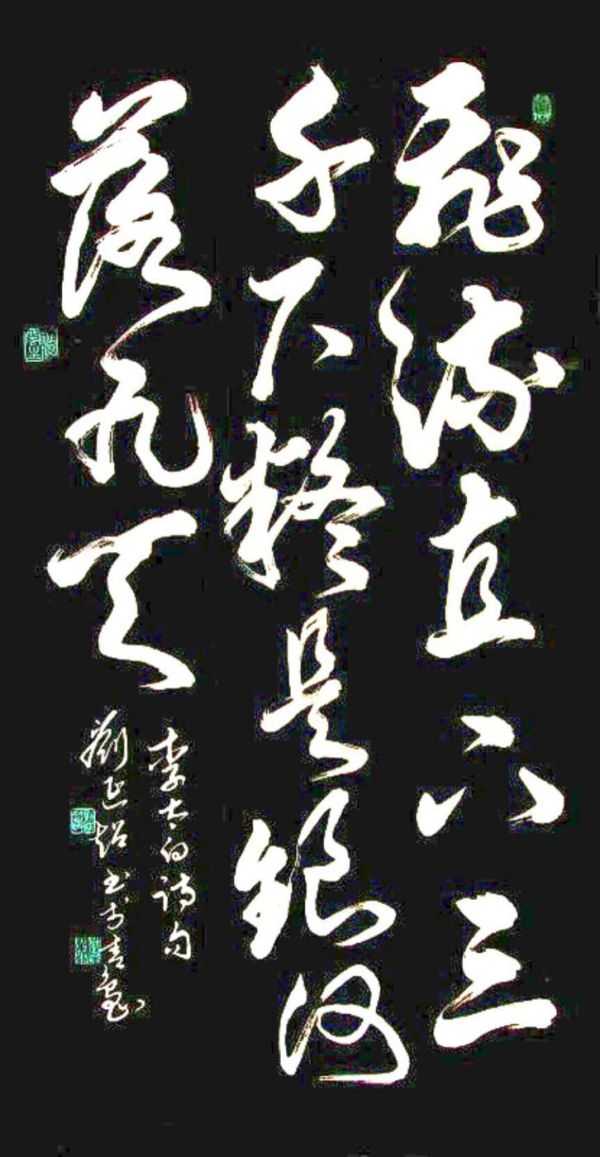 飛流直下三
千尺疑是銀河
落九天
李太白詩句
劉書於青島